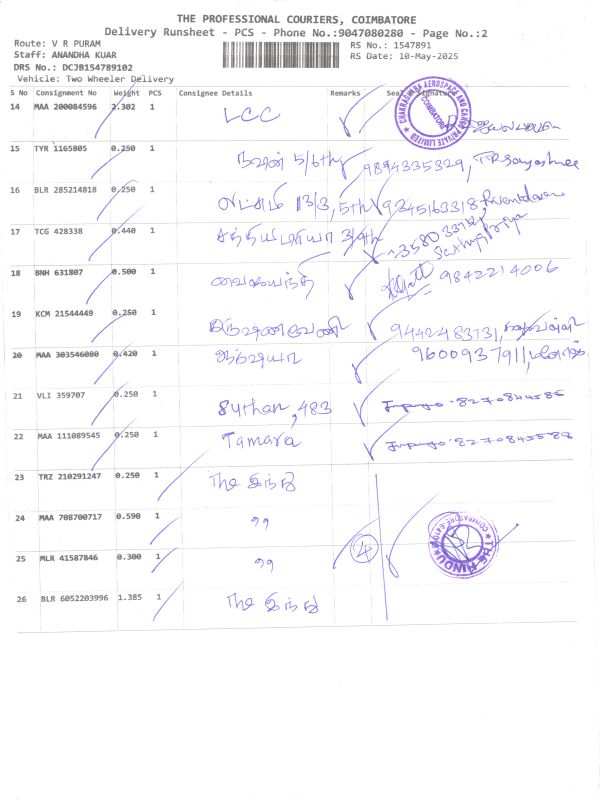 THE PROFESSIONAL COURIERS, COIMBATORE
Delivery Runsheet - PCS - Phone No.:9047080280 - Page No.:2
Route: V R PURAM
RS No.: 1547891
Staff: ANANDHA KUAR
RS Date: 10-May-2025
DRS No.: DCJB154789102
Vehicle: Two Wheeler Delivery
S No Consignment No Weight PCS Consignee Details Remarks Seal Signature
14 MAA 200084596 2.302 1 LCC
CHAKRADHARA AEROSPACE AND CARGO PRIVATE LIMITED COIMBATORE
15 TYR 1165805 0.250 1 5/6th 9894335329,
16 BLR 285214818 0.250 1 13/3, 5th 9345163318
17 TCG 428338 0.440 1 சத்தியபிரியா 3/9th Sathyapriya
18 BNH 631807 0.500 1 9842214006
19 KCM 21544449 0.250 1 கிருஷ்ணவேணி 9442483131,
20 MAA 303546080 0.420 1 9600937911,
21 VLI 359707 0.250 1 Suthan, 483 8270844588
22 MAA 111089545 0.250 1 Tamara 8270845588
23 TRZ 210291247 0.250 1 The இந்து
24 MAA 708700717 0.590 1 "
25 MLR 41587846 0.300 1 " 4
THE HINDU
26 BLR 6052203996 1.385 1 The இந்து